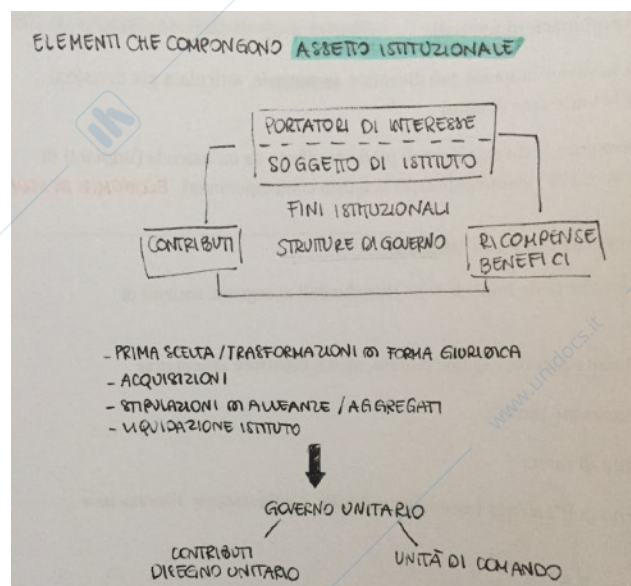 ELEMENTI CHE COMPONGONO ASSETTO ISTITUZIONALE
PORTATORI DI INTERESSE
SOGGETTO DI ISTITUTO
FINI ISTITUZIONALI
CONTRIBUTI
STRUTTURE DI GOVERNO
RICOMPENSE
BENEFICI
- PRIMA SCELTA / TRASFORMAZIONI DI FORMA GIURIDICA
- ACQUISIZIONI
- STIPULAZIONI DI ALLEANZE / AGGREGATI
- LIQUIDAZIONE ISTITUTO
GOVERNO UNITARIO
CONTRIBUTI
DISEGNO UNITARIO
UNITÀ DI COMANDO
www.unidocs.it